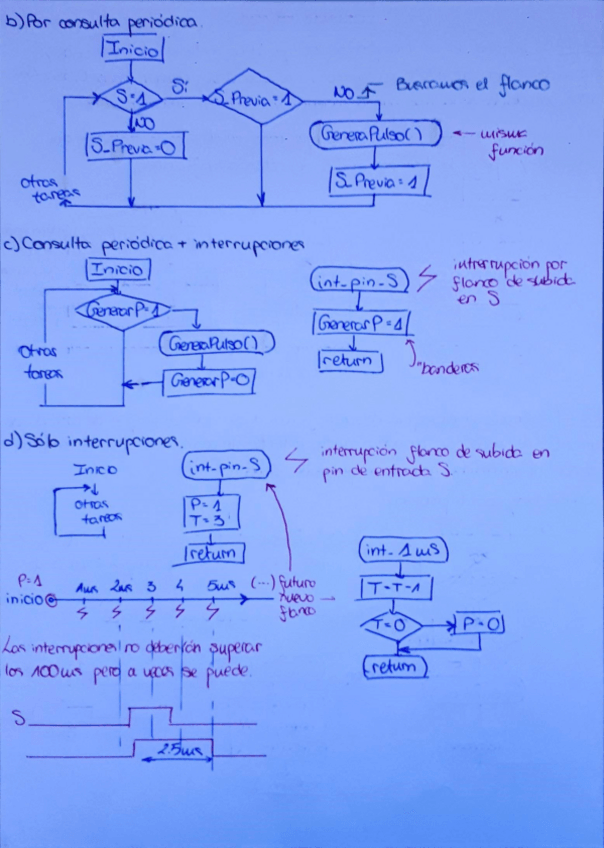 b) Por consulta periódica.
Inicio
S=1
Sí
S_Previa=1
NO ↑ Buscamos el flanco
NO
S_Previa=0
GeneraPulso() ← misma
función
S_Previa=1
Otras
tareas
c) Consulta periódica + interrupciones
Inicio
GenerarP=1
GeneraPulso()
GenerarP=0
Otras
tareas
int_pin_S
interrupción por
flanco de subida
en S
GenerarP=1
return
"banderas
d) Sólo interrupciones.
Inicio
otras
tareas
int_pin_S
interrupción flanco de subida en
pin de entrada S.
P=1
T=3
return
P=1
inicio
1ms 2ms 3 4 5ms (...) futuro
nuevo
flanco
int_1ms
T=T-1
T=0
P=0
return
Las interrupciones no deberían superar
los 100ms pero a veces se puede.
S
2.5ms